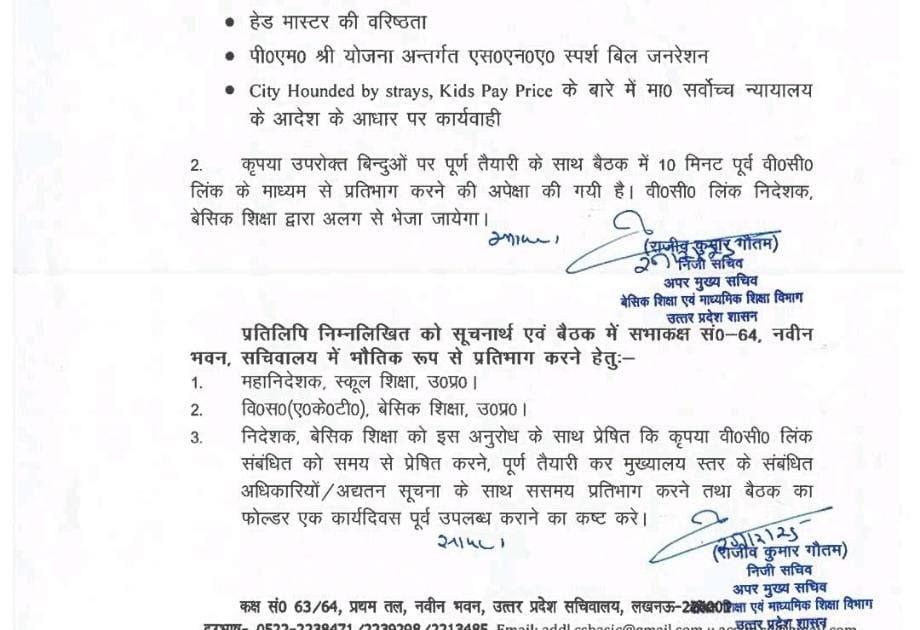 • हेड मास्टर की वरिष्ठता
• पी0एम0 श्री योजना अन्तर्गत एस0एन0ए0 स्पर्श बिल जनरेशन
• City Hounded by strays, Kids Pay Price के बारे में मा0 सर्वोच्च न्यायालय
के आदेश के आधार पर कार्यवाही
2. कृपया उपरोक्त बिन्दुओं पर पूर्ण तैयारी के साथ बैठक में 10 मिनट पूर्व वी0सी0
लिंक के माध्यम से प्रतिभाग करने की अपेक्षा की गयी है। वी0सी0 लिंक निदेशक,
बेसिक शिक्षा द्वारा अलग से भेजा जायेगा।
(राजीव कुमार गौतम)
निजी सचिव
अपर मुख्य सचिव
बेसिक शिक्षा एवं माध्यमिक शिक्षा विभाग
उत्तर प्रदेश शासन
प्रतिलिपि निम्नलिखित को सूचनार्थ एवं बैठक में सभाकक्ष सं0–64, नवीन
भवन, सचिवालय में भौतिक रूप से प्रतिभाग करने हेतुः–
1. महानिदेशक, स्कूल शिक्षा, उ0प्र0।
2. वि0स0(ए0के0टी0), बेसिक शिक्षा, उ0प्र0।
3. निदेशक, बेसिक शिक्षा को इस अनुरोध के साथ प्रेषित कि कृपया वी0सी0 लिंक
संबंधित को समय से प्रेषित करने, पूर्ण तैयारी कर मुख्यालय स्तर के संबंधित
अधिकारियों/अद्यतन सूचना के साथ ससमय प्रतिभाग करने तथा बैठक का
फोल्डर एक कार्यदिवस पूर्व उपलब्ध कराने का कष्ट करे।
(राजीव कुमार गौतम)
निजी सचिव
अपर मुख्य सचिव
कक्ष सं0 63/64, प्रथम तल, नवीन भवन, उत्तर प्रदेश सचिवालय, लखनऊ- शिक्षा एवं माध्यमिक शिक्षा विभाग
दूरभाष- 0522-2238471/2239298/2213485 Email: उत्तर प्रदेश शासन